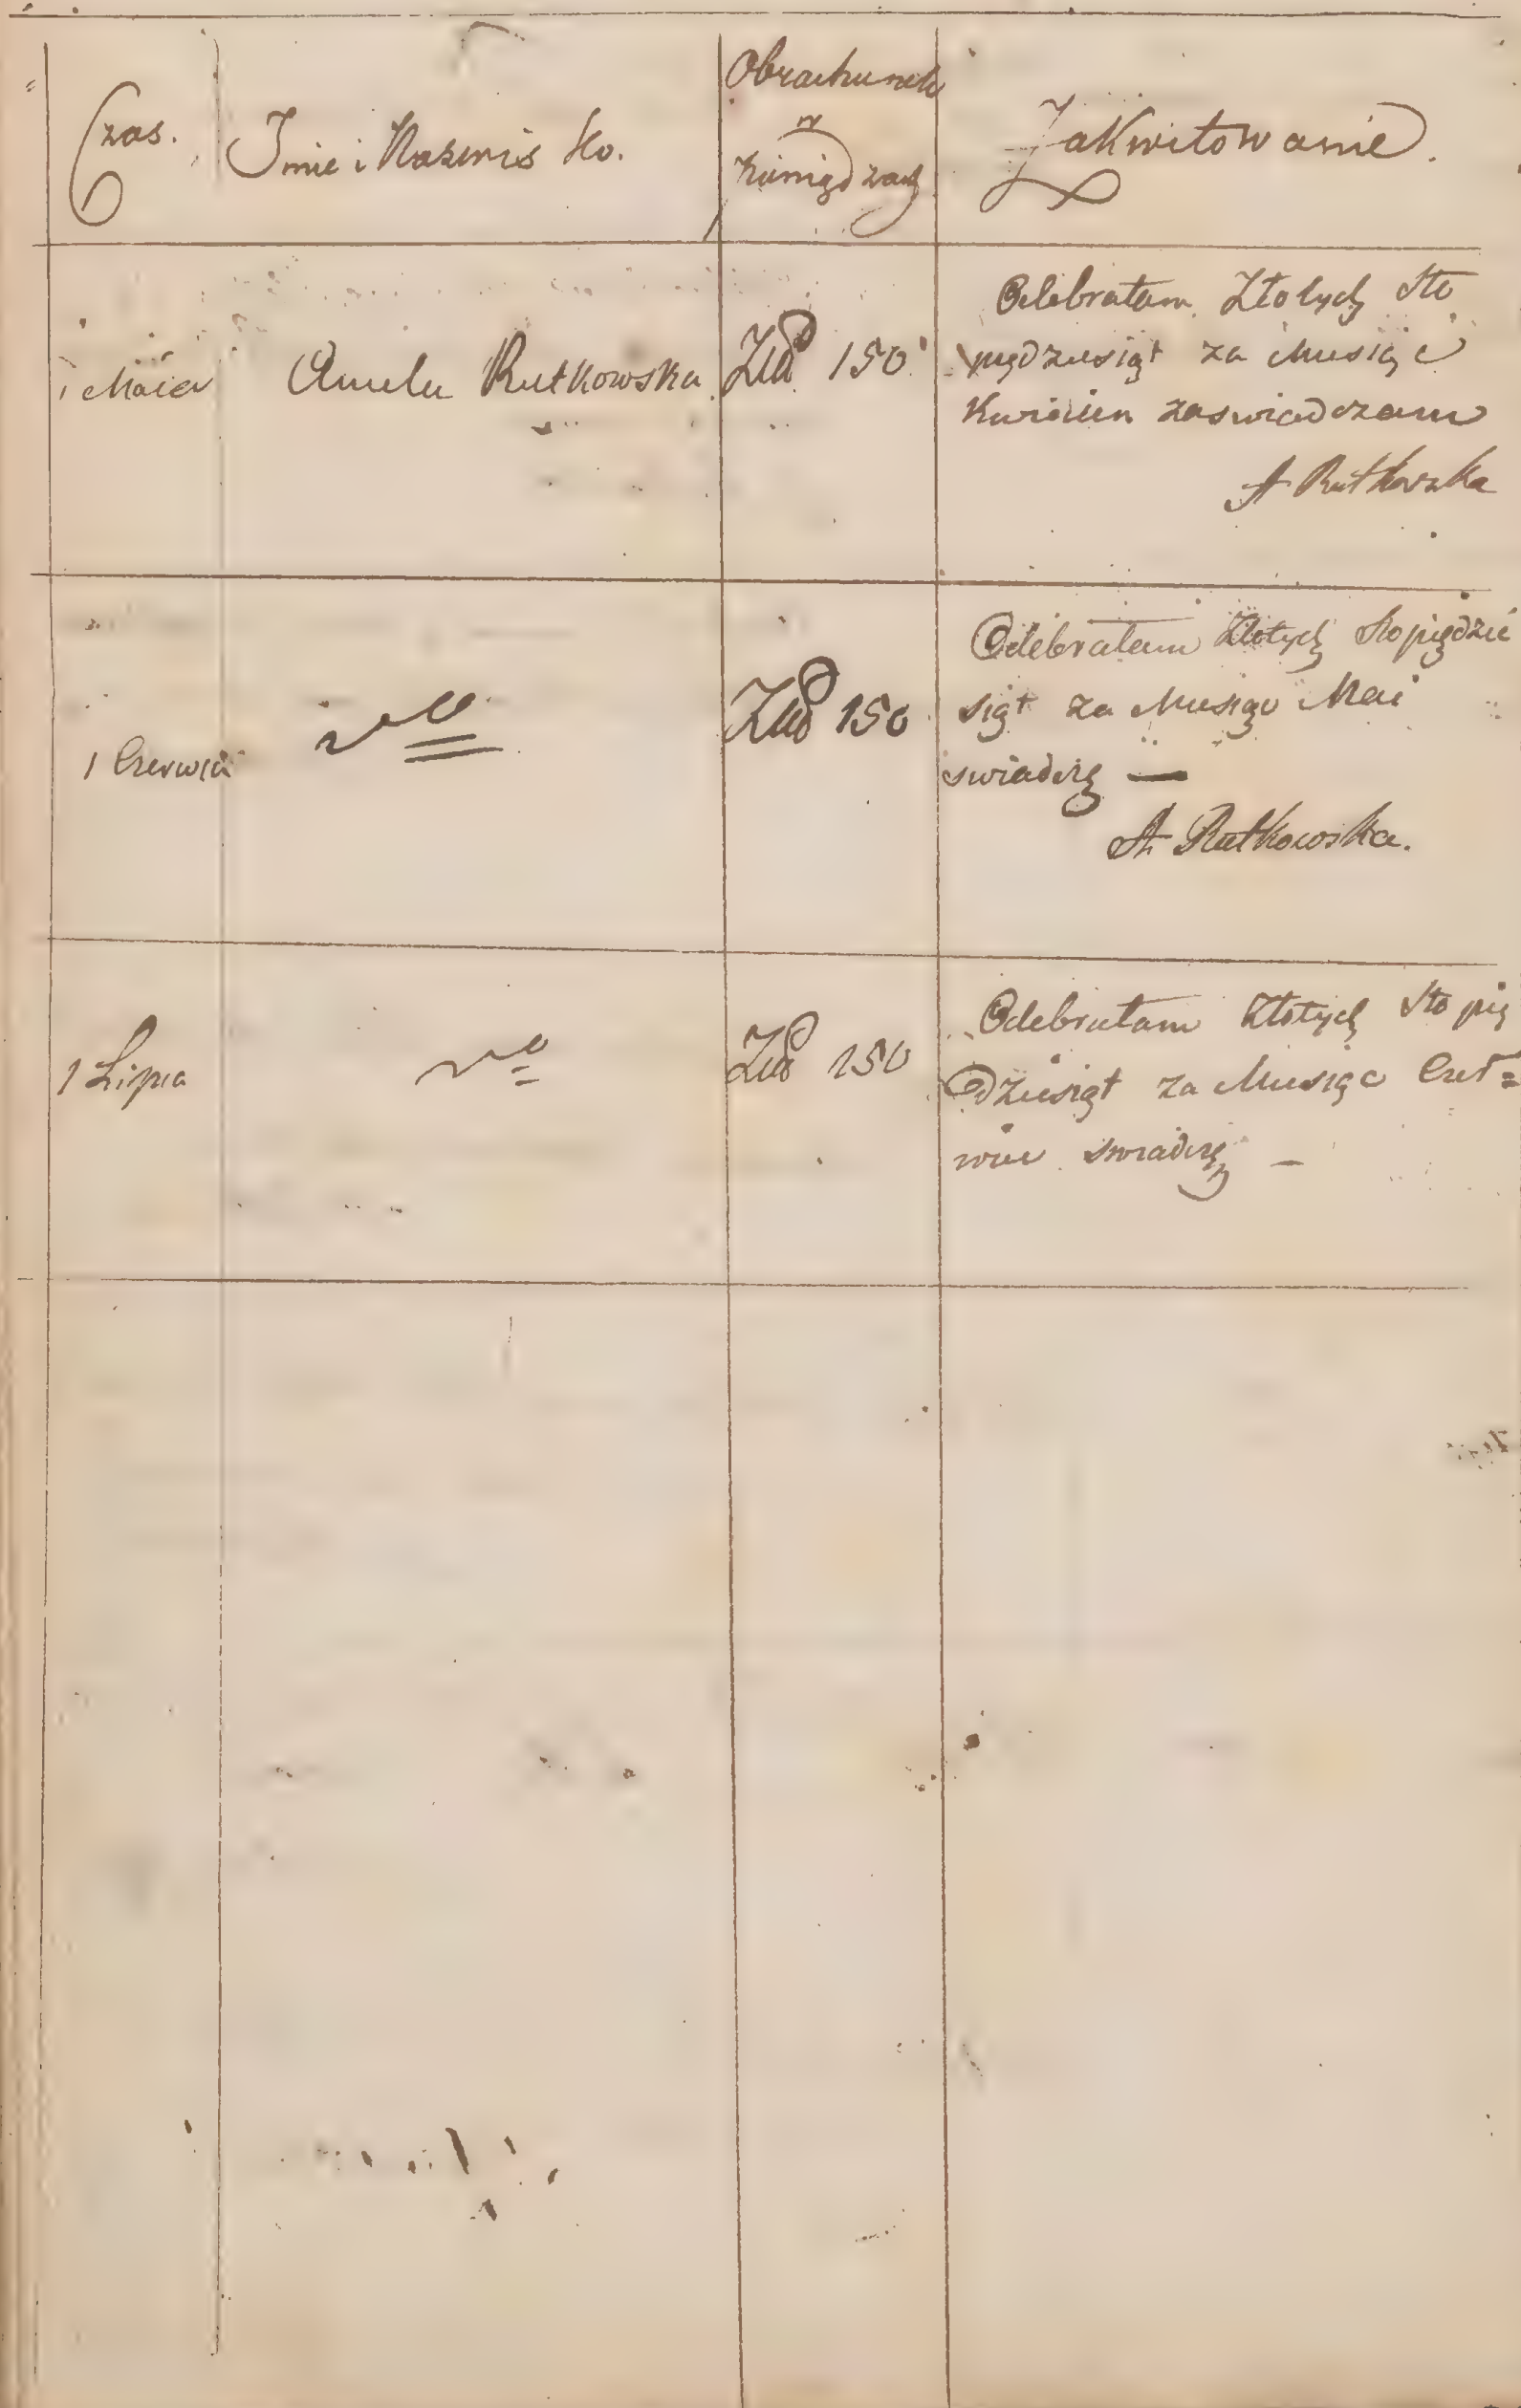 Czas.
Imie i Nazwis ko.
Obrachunek
w
Pieniądzach
Zakwitowanie.
1 Maia
Amela Rutkowska
Złp 150
Odebrałam Złotych Sto
piędziesiąt za Miesiąc
Kwiecien zaswiadczam
A Rutkowska
1 Czerwca
Złp 150
Odebrałam Złotych Stopiędzie
siąt za Miesiąc Mai
swiadczę —
A Rutkowska.
1 Lipca
Złp 150
Odebrałam Złotych Sto pię
dziesiąt za Miesiąc Czer=
wiec swiadczę —